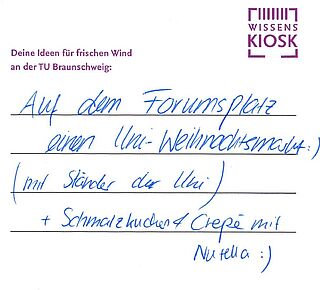 WISSENS
KIOSK
Deine Ideen für frischen Wind
an der TU Braunschweig:
Auf dem Forumsplatz
einen Uni-Weihnachtsmarkt :)
(mit Ständer der Uni)
+ Schmalzkuchen & Crepé mit
Nutella :)